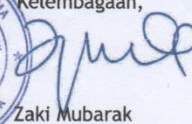 Kelembagaan,
Zaki Mubarak